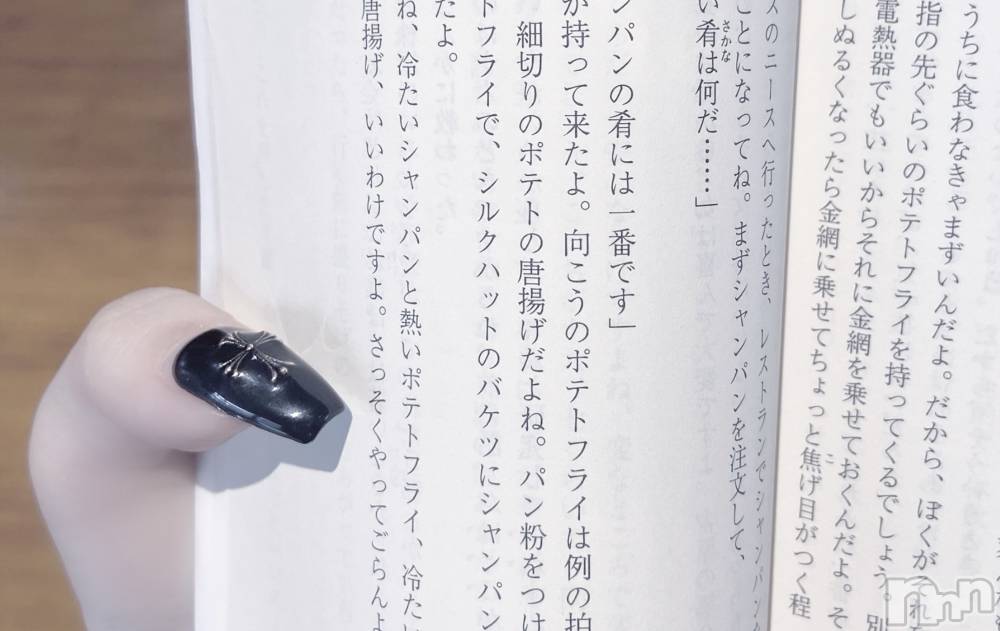 うちに食わなきゃまずいんだよ。だから、ぼくがそれ
指の先ぐらいのポテトフライを持ってくるでしょう。別
電熱器でもいいからそれに金網を乗せておくんだよ。そ
しぬるくなったら金網に乗せてちょっと焦げ目がつく程
こ
スのニースへ行ったとき、レストランでシャンパン
ことになってね。まずシャンパンを注文して、
い肴は何だ……」
さかな
ンパンの肴には一番です」
が持って来たよ。向こうのポテトフライは例の拍
細切りのポテトの唐揚げだよね。パン粉をつけ
トフライで、シルクハットのバケツにシャンパン
たよ。
ね、冷たいシャンパンと熱いポテトフライ、冷たい
唐揚げ、いいわけですよ。さっそくやってごらんよ